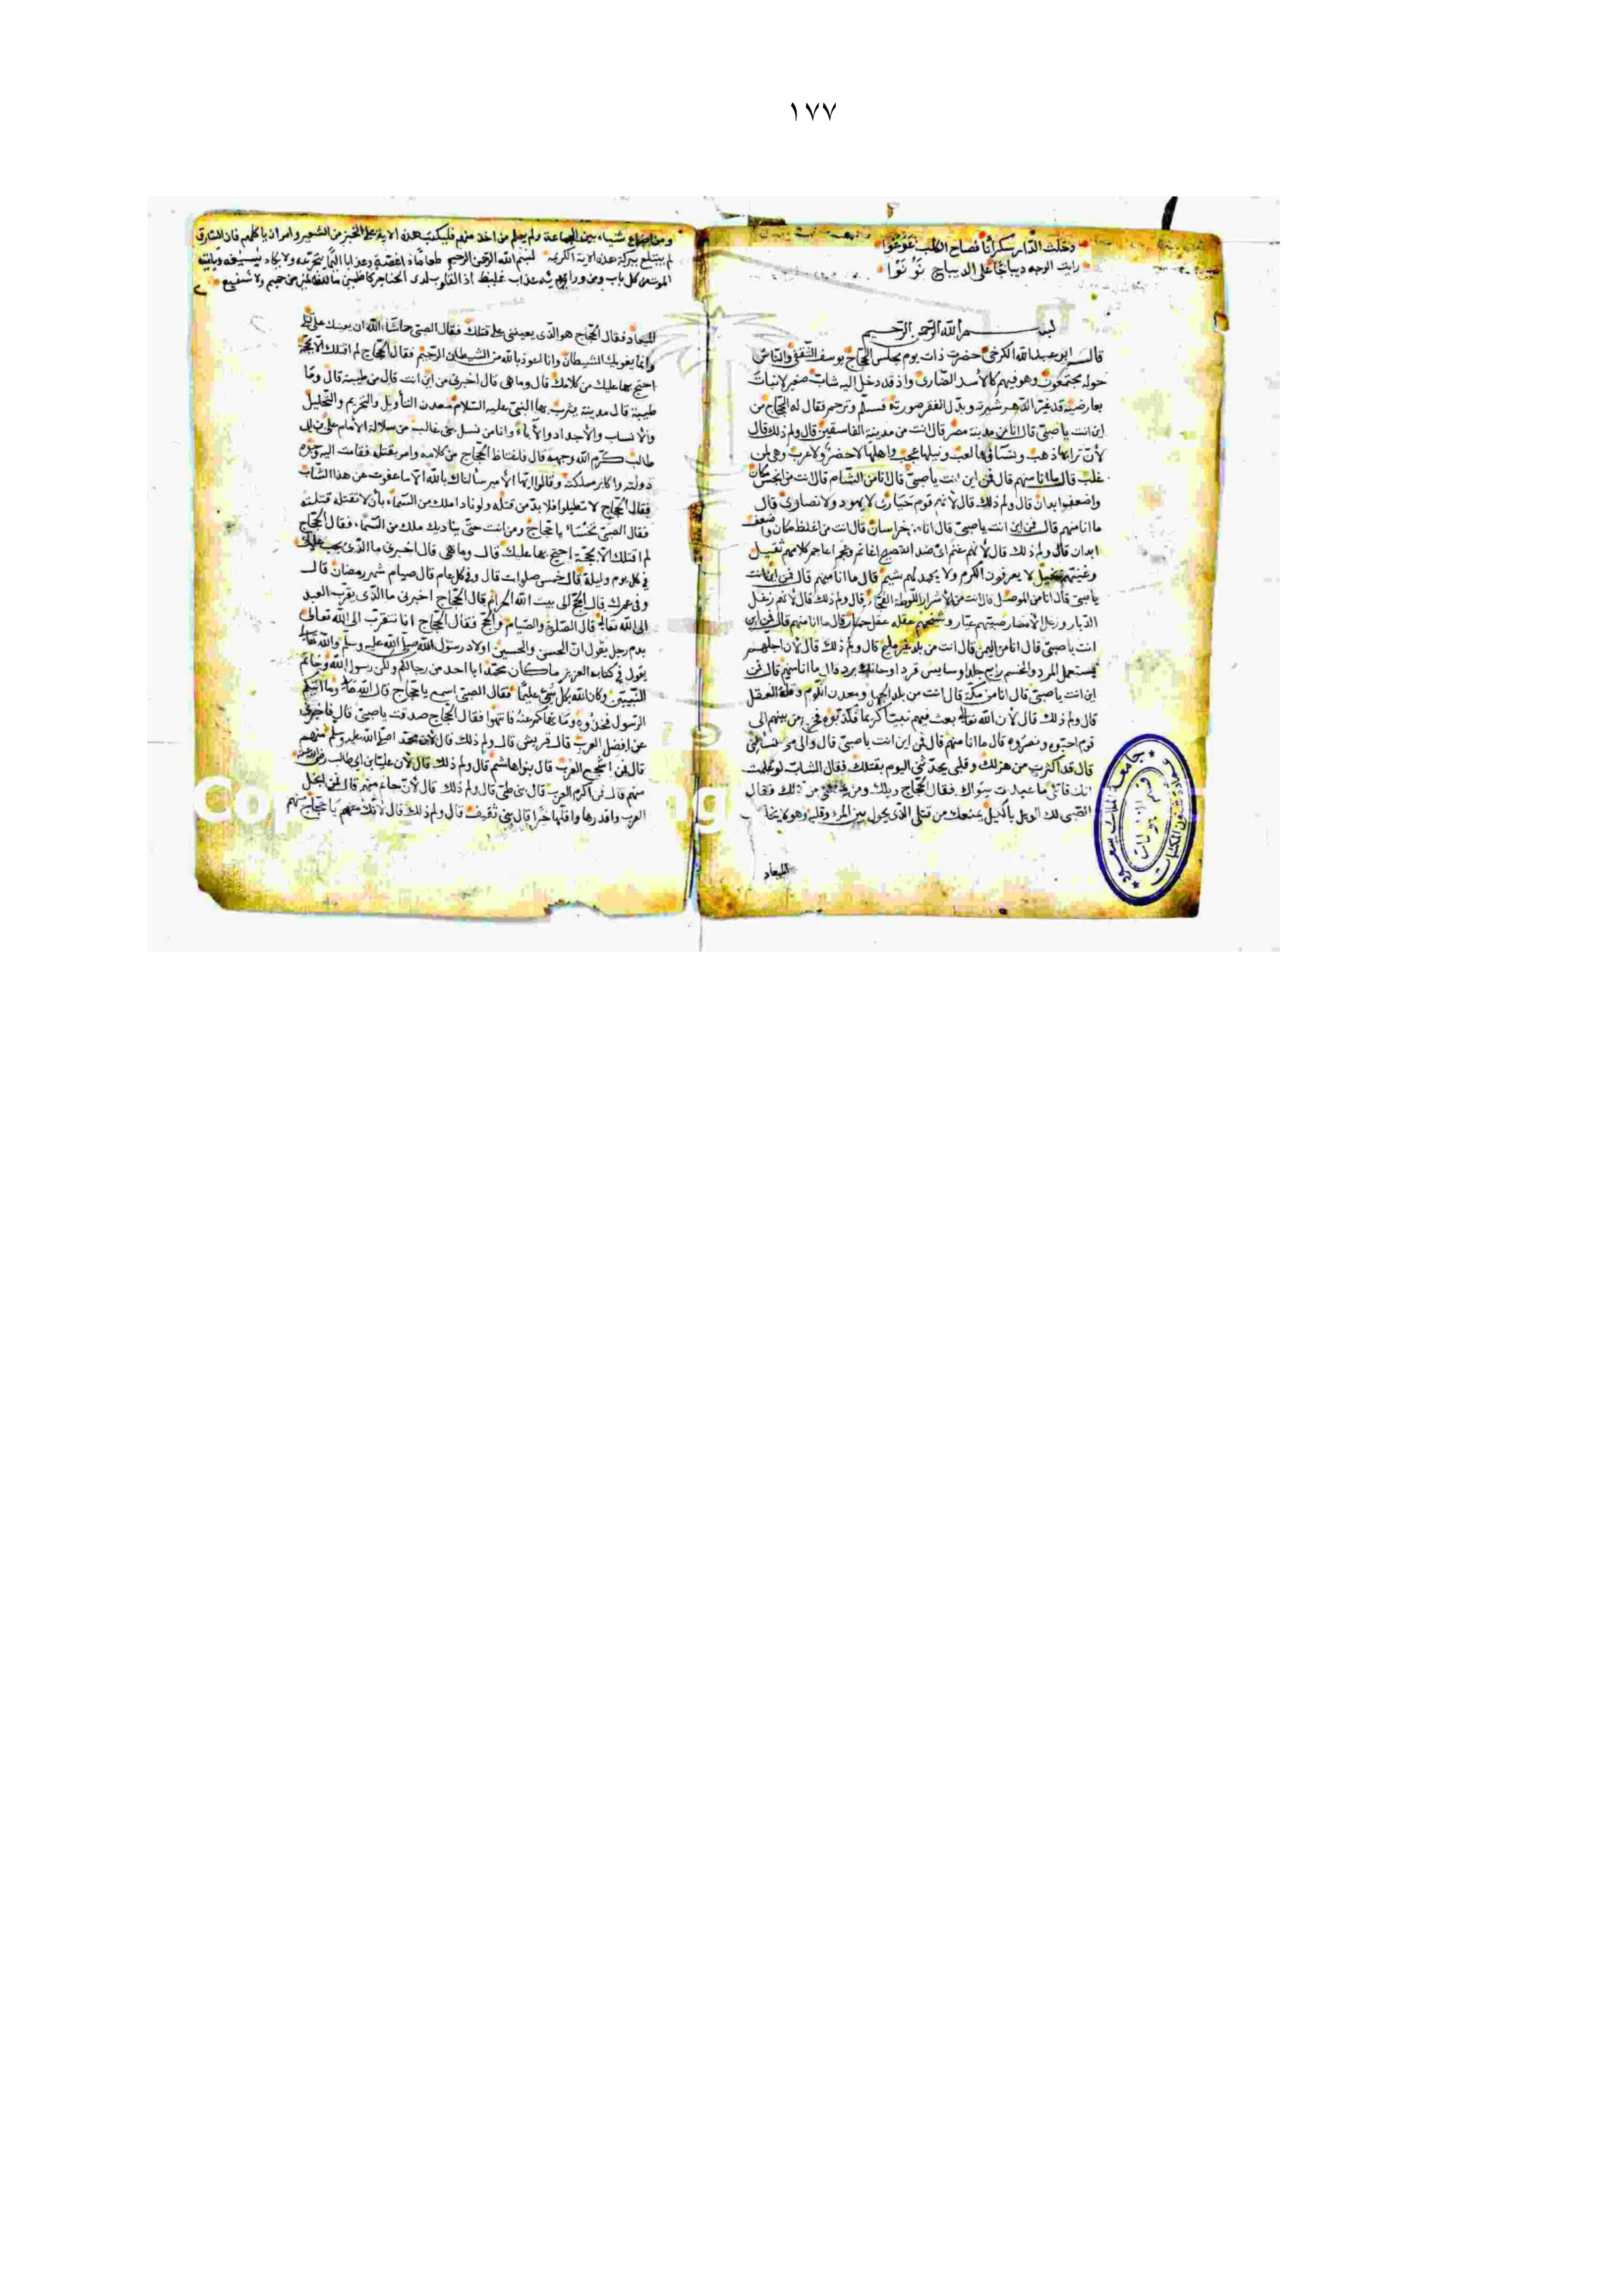 ١٧٧
دخلت الدار سكرانا فصاح الكلب عوعوا
رايت الوجه ديباجا على الديباج نو نوا
بسم الله الرحمن الرحيم
قال ابو عبد الله الكرخي حضرت ذات يوم مجلس الحجاج يوسف الثقفي والناس
حوله مجتمعون وهو فيهم كالأسد الضارى واذ قد دخل اليه شاب صغير لانبات
بعارضيه قد غير الدهر شبرته وبدل الفقر صورته فسلم وترحم فقال له الحجاج من
اين انت يا صبي قال انا من مدينة مصر قال انت من مدينة الفاسقين قال ولم ذلك قال
لأن ترابها ذهب ونساؤها لعب ونيلها عجب واهلها لا حضر ولا عرب وهي لمن
غلب قال ما انا منهم قال فمن اين انت يا صبي قال انا من الشام قال انت من انجس مكان
واضعفوا بدان قال ولم ذلك قال لأنهم قوم حيارى لا يهود ولا نصارى قال
ما انا منهم قال فمن اين انت يا صبي قال انا من خراسان قال انت من اغلظ مكان واضعف
ابدان قال ولم ذلك قال لأنهم غنم اى ضد الفصيح اغاتم وعجم اعاجم كلامهم ثقيل
وغنيهم بخيل لا يعرفون الكرم ولا يحمد لهم شيم قال ما انا منهم قال فمن اين انت
يا صبي قال انا من الموصل قال انت من الأشرار اللوطة الفجار قال ولم ذلك قال لأنهم زغل
الديار وزغل الأمصار صبيهم عيار وشيخهم عقله عقل حمار قال ما انا منهم قال فمن اين
انت يا صبي قال انا من اليمن قال انت من بلد غير مليح قال ولم ذلك قال لأن اجلهم
يستعمل المرد والخسيس رابح جلدا وسايس قرد او حائك برد قال ما انا منهم قال فمن
اين انت يا صبي قال انا من مكة قال انت من بلد الجهل ومعدن اللوم وقلة العقل
قال ولم ذلك قال لأن الله تعالى بعث فيهم نبيا كريما فكذبوه فخرج من بينهم الى
قوم احبوه ونصروه قال ما انا منهم قال فمن اين انت يا صبي قال والى متى تسألنى
قال قد اكثرت من هزلك وقلبى يحدثنى اليوم بقتلك فقال الشاب لو علمت
انك قاتلى ما عبدت سواك فقال الحجاج ويلك ومن يمنعنى من ذلك فقال
الصبى لك الويل يا كيل يمنعك من قتلى الذى يحول بين المرء وقلبه وهو لا يخلف
الميعاد
ومن ضاع شيأ بين الجماعة ولم يعلم من اخذ منهم فليكتب هذه الاية على الخبز من الشعير وامر اذ ياكلهم فان السارق
لم يبتلع ببركة هذه الاية الكريمة بسم الله الرحمن الرحيم طعاما ذا غصة وعذابا اليما يتجرعه ولا يكاد يسيغه ويأتيه
الموت من كل باب ومن ورائهم عذاب غليظ اذ القلوب لدى الحناجر كاظمين ما للظالمين من حميم ولا شفيع
الميعاد فقال الحجاج هو الذى يعيننى على قتلك فقال الصبى حاشا الله ان يعينك على قتلى
وانما يغويك الشيطان وانا اعوذ بالله من الشيطان الرجيم فقال الحجاج لم اقتلك الا بحجة
احتج بها عليك من كلامك قال وما هى قال اخبرنى من اين انت قال من طيبة قال وما
طيبة قال مدينة يثرب بها النبى عليه السلام معدن التأويل والتحريم والتحليل
والانساب والأجداد والآباء وانا من نسل بنى غالب من سلالة الأمام على بن ابى
طالب كرم الله وجهه قال فاغتاظ الحجاج من كلامه وامر بقتله فقامت اليه وجوه
دولته واكابر مملكته وقالوا ايها الأمير سالناك بالله الا ما عفوت عن هذا الشاب
فقال الحجاج لا تطيلوا فلا بد من قتله ولو نادا ملك من السماء بأن لا تقتله قتلته
فقال الصبى تخسأ يا حجاج ومن انت حتى يناديك ملك من السماء فقال الحجاج
لم اقتلك الا بحجة احتج بها عليك قال وما هى قال اخبرنى ما الذى يجب عليك
فى كل يوم وليلة قال خمس صلوات قال وفى كل عام قال صيام شهر رمضان قال
وفى عمرك قال الحج الى بيت الله الحرام قال الحجاج اخبرنى ما الذى يقرب العبد
الى الله تعالى قال الصلوة والصيام والحج فقال الحجاج انا نتقرب الى الله تعالى
بدم رجل يقول ان الحسن والحسين اولاد رسول الله صلى الله عليه وسلم والله تعالى
يقول فى كتابه العزيز ما كان محمد ابا احد من رجالكم ولكن رسول الله وخاتم
النبيين وكان الله بكل شئ عليما فقال الصبى اسمع يا حجاج قال الله تعالى وما اتيكم
الرسول فخذوه وما نهاكم عنه فانتهوا فقال الحجاج صدقت يا صبى قال فاخبرنى
عن افضل العرب قال قريش قال ولم ذلك قال لأن محمد صلى الله عليه وسلم منهم
قال فمن اشجع العرب قال بنوا هاشم قال ولم ذلك قال لأن على بن ابى طالب رضى الله عنه
منهم قال فمن اكرم العرب قال بنى طى قال ولم ذلك قال لأن حاتم منهم قال فمن ابخل
العرب واقدرها واقلها خيرا قال بنى ثقيف قال ولم ذلك قال لأنك منهم يا حجاج